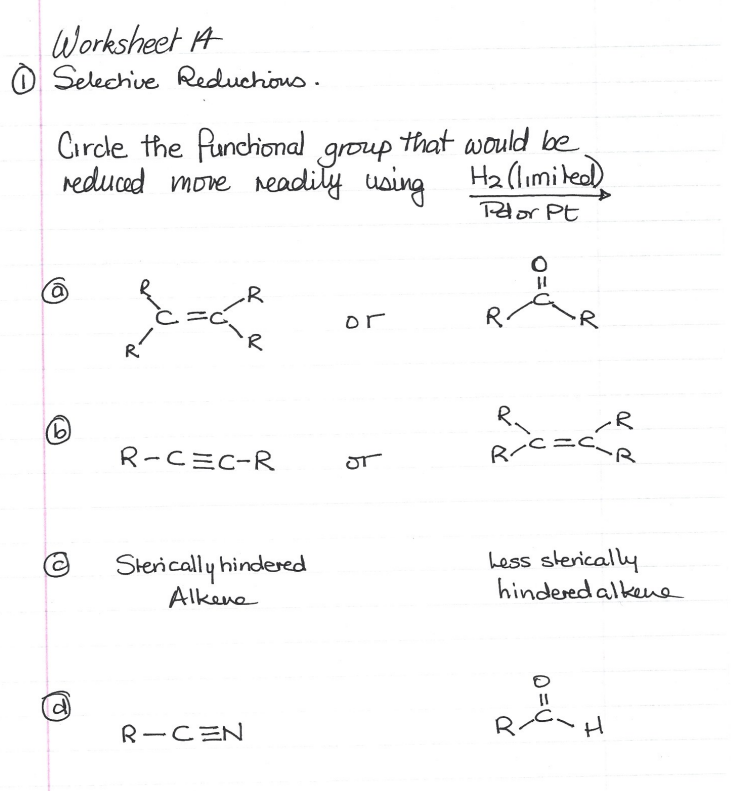 Worksheet 1A
① Selective Reductions.
Circle the functional group that would be
reduced more readily using H2 (limited)
Pd or Pt
ⓐ R R C=C R R or O C R R
ⓑ R-C≡C-R or R R C=C R R
ⓒ Sterically hindered Less sterically
Alkene hindered alkene
ⓓ R-C≡N O R C H